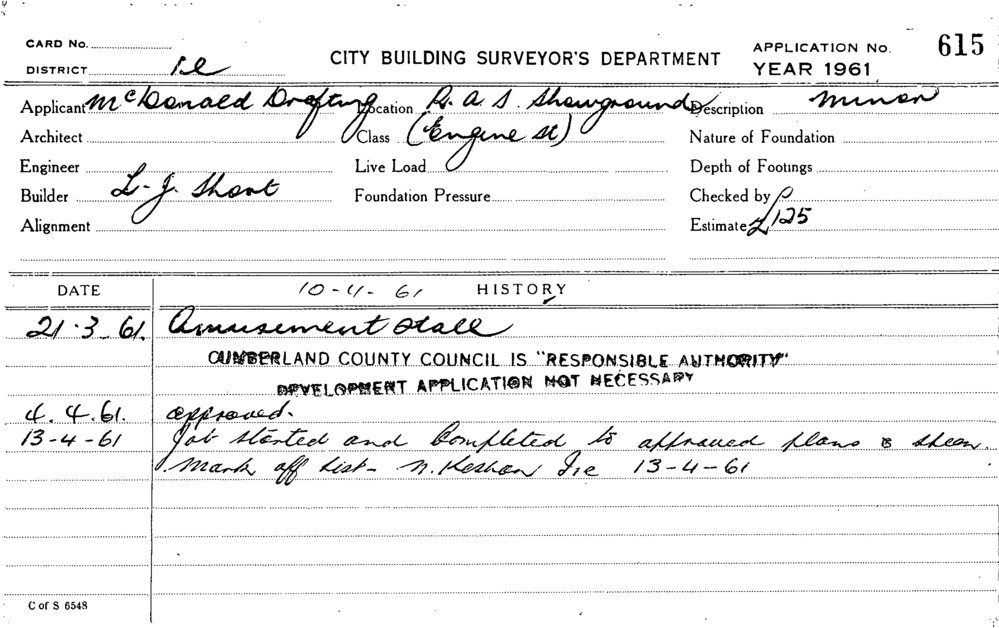 CARD No.
CITY BUILDING SURVEYOR'S DEPARTMENT
APPLICATION No. 615
DISTRICT Ie
YEAR 1961
Applicant McDonald Drafting Location R. A. S. Showground Description minor
Architect Class (Engine st) Nature of Foundation
Engineer Live Load Depth of Footings
Builder L. J. Short Foundation Pressure Checked by
Alignment Estimate £125
DATE 10-4-61 HISTORY
21.3.61. Amusement stall
CUMBERLAND COUNTY COUNCIL IS "RESPONSIBLE AUTHORITY"
DEVELOPMENT APPLICATION NOT NECESSARY
4.4.61. approved.
13-4-61 Job started and Completed to approved plans &
Mark off list - N. 13-4-61
C of S 6548